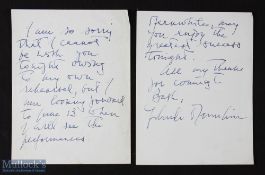 I am so sorry
that I cannot
be with you
tonight owing
to my own
rehearsal, but I
am looking forward
to June 13th when
I will see the
performances
you enjoy the
greatest success
tonight.
All my thanks
for coming to
Bath,
Mullock's